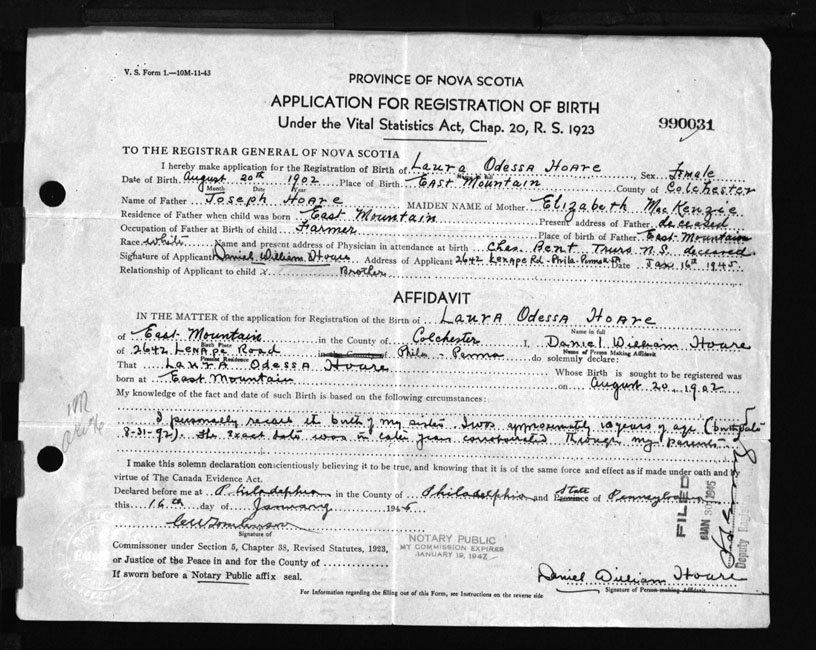 V. S. Form 1.—10M-11-43
PROVINCE OF NOVA SCOTIA
APPLICATION FOR REGISTRATION OF BIRTH
Under the Vital Statistics Act, Chap. 20, R. S. 1923
990031
TO THE REGISTRAR GENERAL OF NOVA SCOTIA
I hereby make application for the Registration of Birth of Laura Odessa Hoare Sex Female
Date of Birth August 20th 1902 Place of Birth East Mountain County of Colchester
Month Date Year
Name of Father Joseph Hoare MAIDEN NAME of Mother Elizabeth MacKenzie
Residence of Father when child was born East Mountain Present address of Father deceased
Occupation of Father at Birth of child Farmer Place of Birth of Father East Mountain
Race White Name and present address of Physician in attendance at birth Chas. Dent Truro N.S. deceased
Signature of Applicant Daniel William Hoare Address of Applicant 2642 Lenape Rd. Phila. Date Jan 16th 1945
Relationship of Applicant to child x Brother
AFFIDAVIT
IN THE MATTER of the application for Registration of the Birth of Laura Odessa Hoare
Name in full
of East Mountain in the County of Colchester I, Daniel William Hoare
Birth Place Name of Person Making Affidavit
of 2642 Lenape Road in the County of Phila - Penna do solemnly declare:
Present Residence
That Laura Odessa Hoare Whose Birth is sought to be registered was
born at East Mountain on August 20, 1902
My knowledge of the fact and date of such Birth is based on the following circumstances:
I personally recall the birth of my sister. I was approximately 10 years of age (birthdate
8-31-92). The exact date was in later years corroborated through my parents
I make this solemn declaration conscientiously believing it to be true, and knowing that it is of the same force and effect as if made under oath and by
virtue of The Canada Evidence Act.
Declared before me at Philadelphia in the County of Philadelphia and State Province of Pennsylvania
this 16th day of January 1945
Signature of
Commissioner under Section 5, Chapter 38, Revised Statutes, 1923,
or Justice of the Peace in and for the County of
If sworn before a Notary Public affix seal.
NOTARY PUBLIC
MY COMMISSION EXPIRES
JANUARY 19, 1947
FILED
JAN 30 1945
Deputy
Daniel William Hoare
Signature of Person making Affidavit
For Information regarding the filling out of this Form, see Instructions on the reverse side